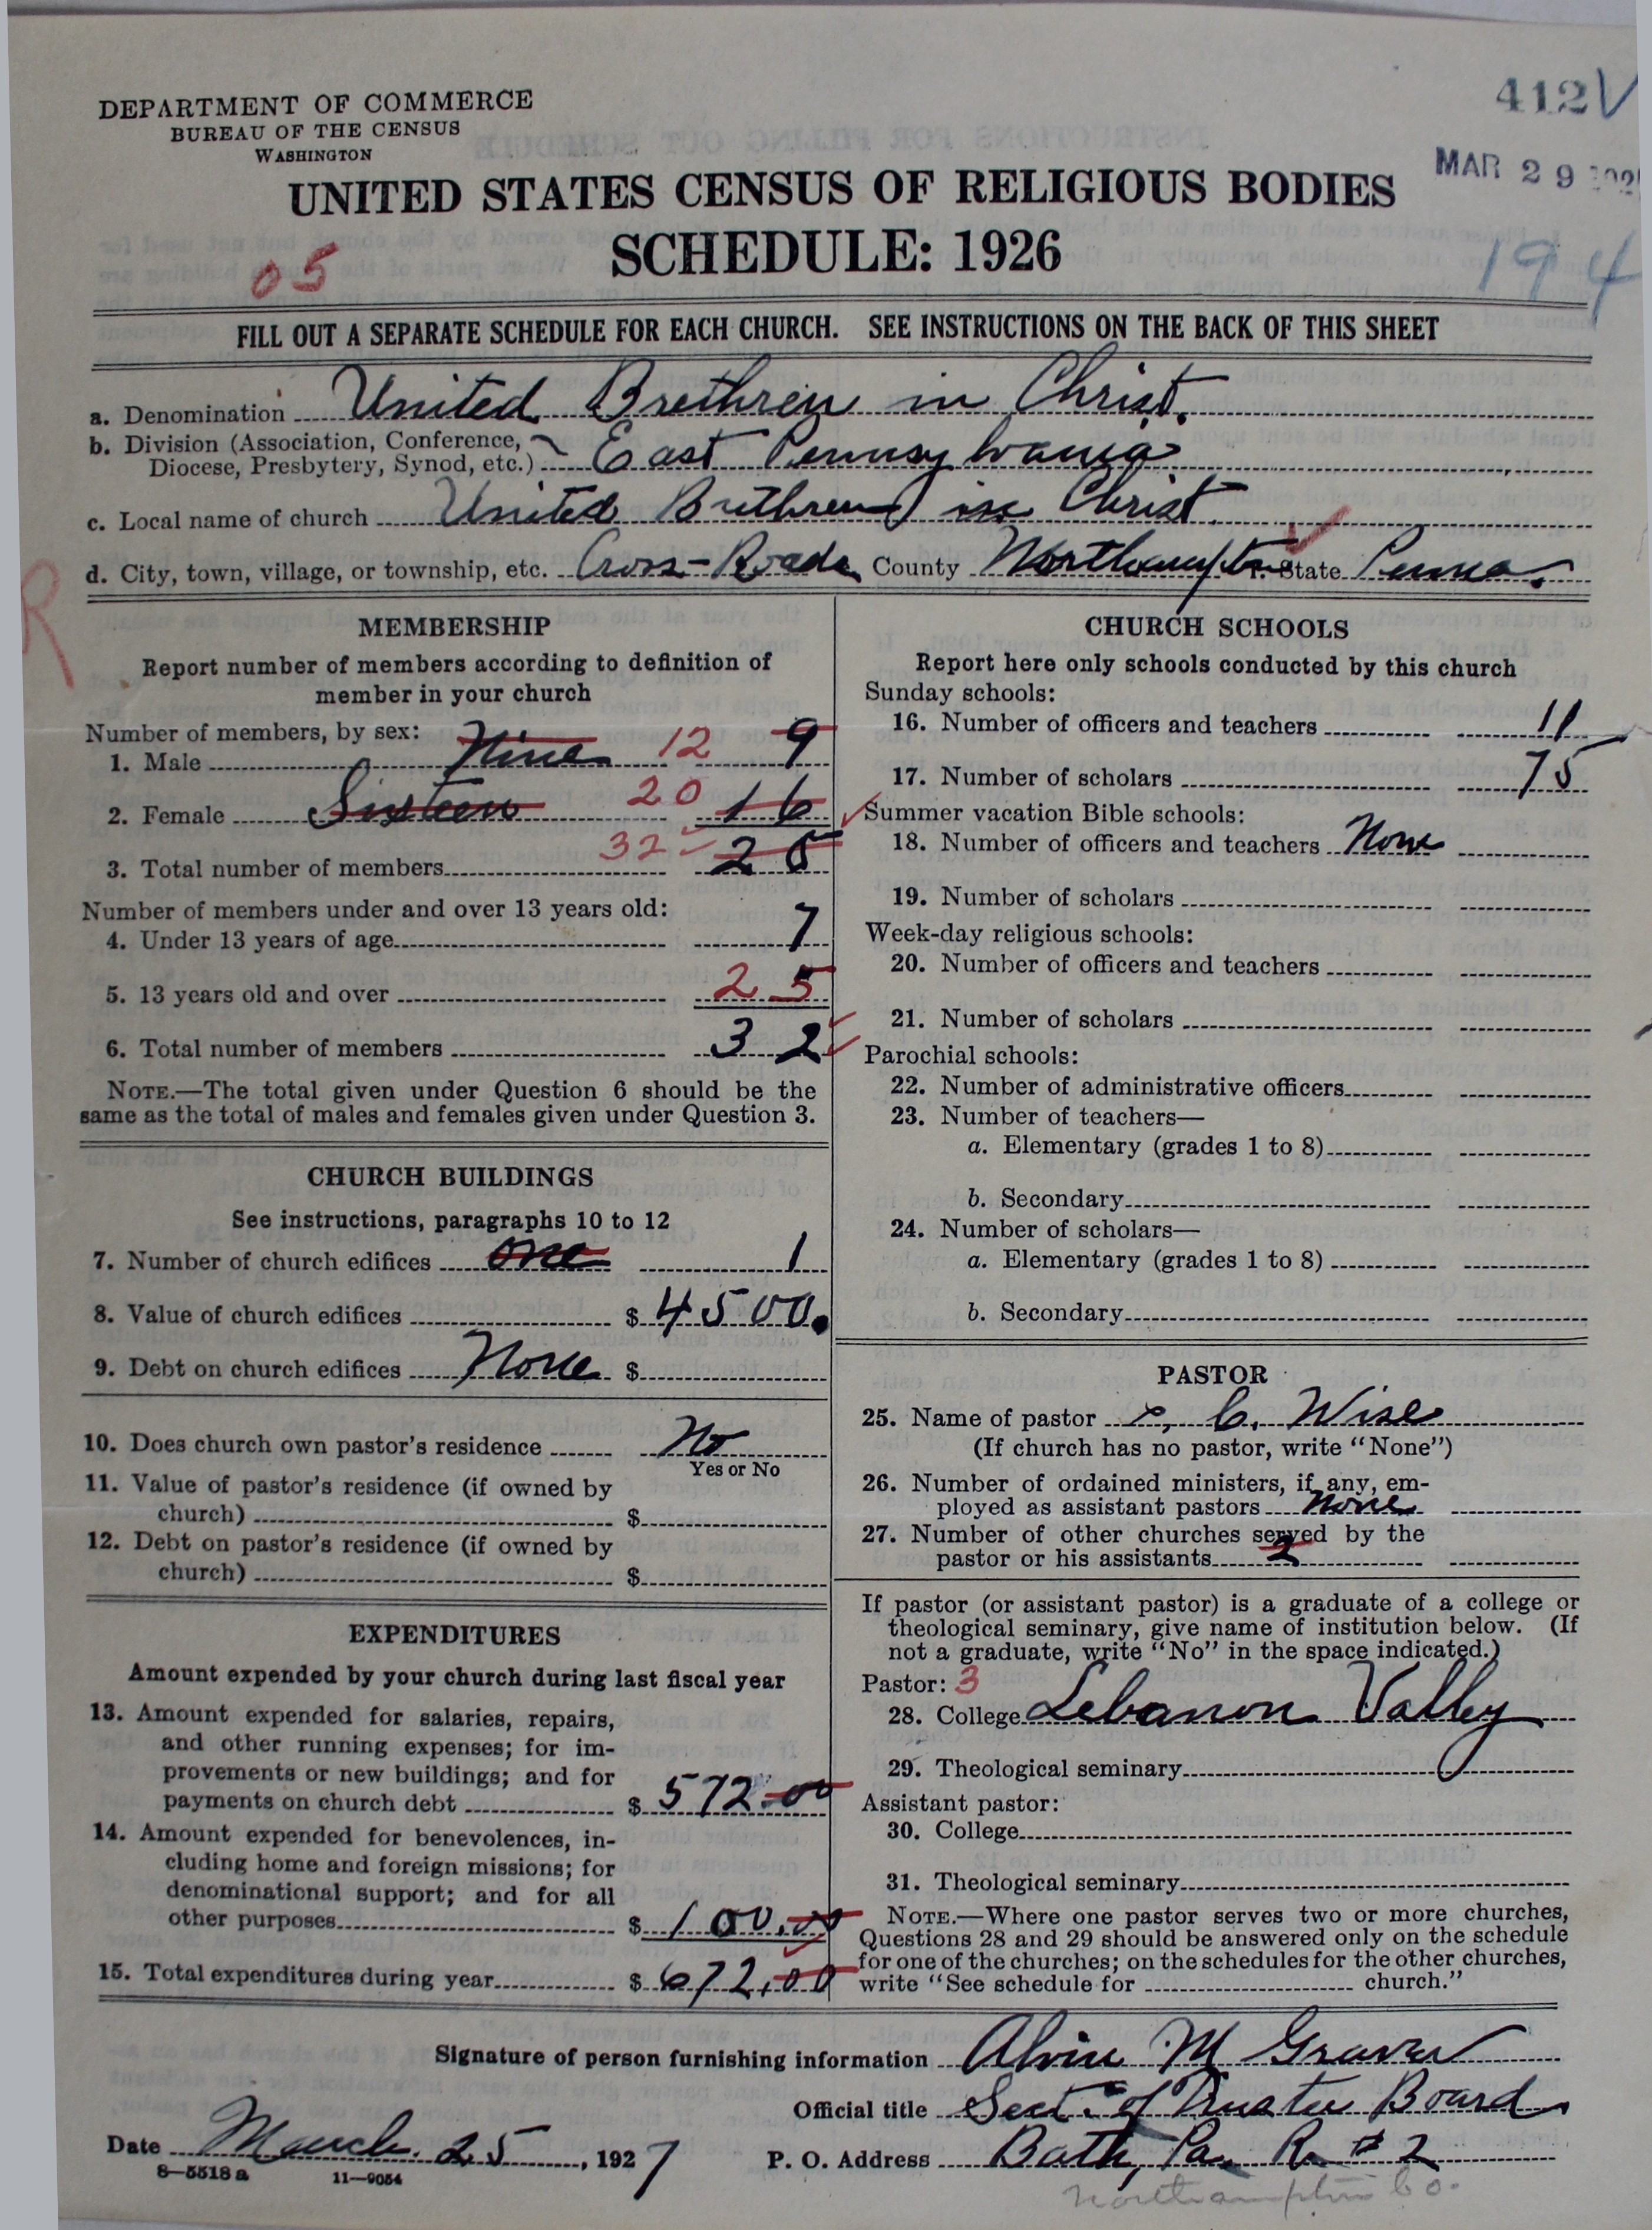 412 V
DEPARTMENT OF COMMERCE
BUREAU OF THE CENSUS
WASHINGTON
MAR 29
UNITED STATES CENSUS OF RELIGIOUS BODIES
SCHEDULE: 1926
05
194
FILL OUT A SEPARATE SCHEDULE FOR EACH CHURCH. SEE INSTRUCTIONS ON THE BACK OF THIS SHEET
a. Denomination United Brethren in Christ.
b. Division (Association, Conference,
Diocese, Presbytery, Synod, etc.) East Pennsylvania
c. Local name of church United Brethren in Christ
d. City, town, village, or township, etc. Cross-Roads County Northampton State Penna.
R
MEMBERSHIP
Report number of members according to definition of
member in your church
Number of members, by sex:
1. Male Nine 12 9
2. Female Sixteen 20 16
3. Total number of members 32 25
Number of members under and over 13 years old:
4. Under 13 years of age 7
5. 13 years old and over 25
6. Total number of members 32
NOTE.—The total given under Question 6 should be the
same as the total of males and females given under Question 3.
CHURCH BUILDINGS
See instructions, paragraphs 10 to 12
7. Number of church edifices one 1
8. Value of church edifices $ 4500.
9. Debt on church edifices None $
10. Does church own pastor's residence No
Yes or No
11. Value of pastor's residence (if owned by
church) $
12. Debt on pastor's residence (if owned by
church) $
EXPENDITURES
Amount expended by your church during last fiscal year
13. Amount expended for salaries, repairs,
and other running expenses; for im-
provements or new buildings; and for
payments on church debt $ 572.00
14. Amount expended for benevolences, in-
cluding home and foreign missions; for
denominational support; and for all
other purposes $ 100.00
15. Total expenditures during year $ 672.00
CHURCH SCHOOLS
Report here only schools conducted by this church
Sunday schools:
16. Number of officers and teachers 11
17. Number of scholars 75
Summer vacation Bible schools:
18. Number of officers and teachers None
19. Number of scholars
Week-day religious schools:
20. Number of officers and teachers
21. Number of scholars
Parochial schools:
22. Number of administrative officers
23. Number of teachers—
a. Elementary (grades 1 to 8)
b. Secondary
24. Number of scholars—
a. Elementary (grades 1 to 8)
b. Secondary
PASTOR
25. Name of pastor C. Wise
(If church has no pastor, write "None")
26. Number of ordained ministers, if any, em-
ployed as assistant pastors None
27. Number of other churches served by the
pastor or his assistants 2
If pastor (or assistant pastor) is a graduate of a college or
theological seminary, give name of institution below. (If
not a graduate, write "No" in the space indicated.)
Pastor: 3
28. College Lebanon Valley
29. Theological seminary
Assistant pastor:
30. College
31. Theological seminary
NOTE.—Where one pastor serves two or more churches,
Questions 28 and 29 should be answered only on the schedule
for one of the churches; on the schedules for the other churches,
write "See schedule for church."
Signature of person furnishing information Alvin M Graver
Official title Sect. of Trustee Board
Date March 25, 1927 P. O. Address Bath, Pa. R. #2
8-5518a 11-9054
Northampton Co.